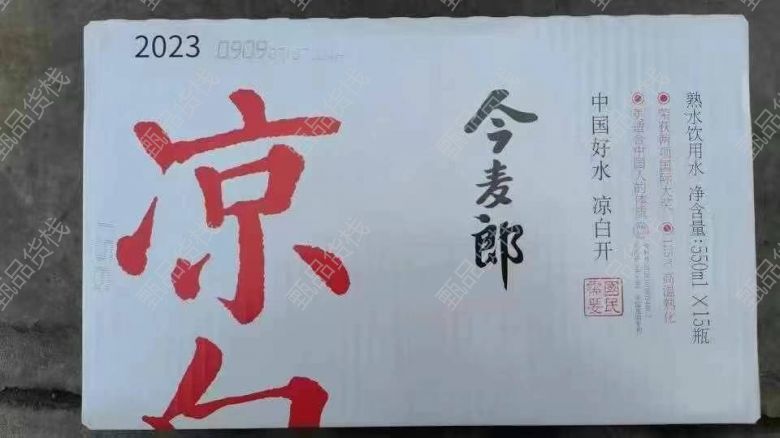 2023 0909
凉白
今麦郎
中国好水 凉白开
熟水饮用水 净含量:550ml×15瓶
荣获两项国际大奖
更适合中国人的体质
125℃高温熟化
国民
甄品货栈